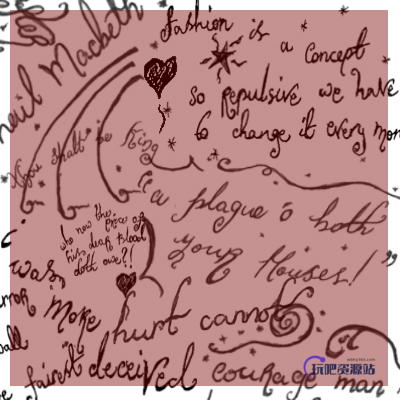 hail Macbeth
Fashion is
a concept
so repulsive we have
to change it every mon
"You shall be King
"a plague o both
your Houses!"
who now the price of
his dear blood
doth owe?!
was
More hurt cannot
fairest deceived courage man
玩吧资源站